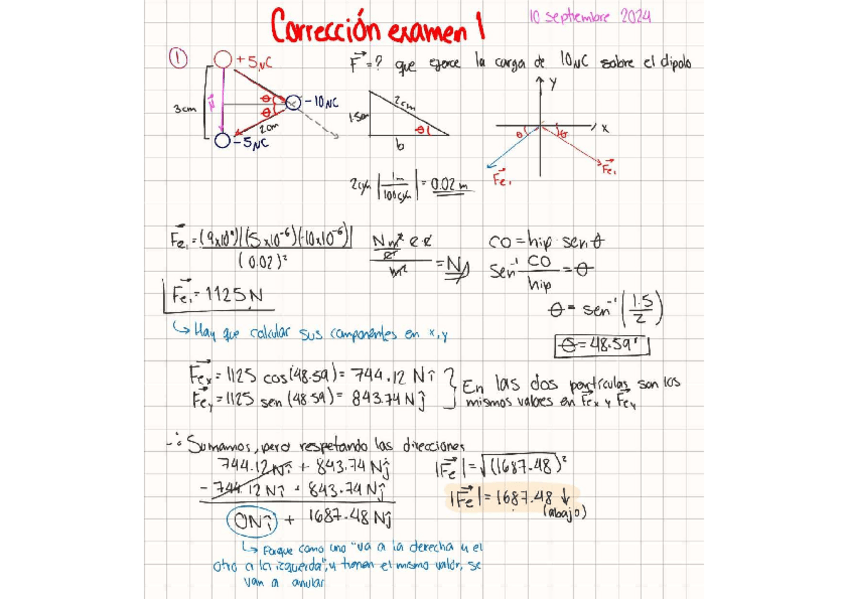 Corrección examen 1
10 septiembre 2024
① +5μC
F⃗=? que ejerce la carga de 10μC sobre el dipolo
3cm
θ
θ
-10μC
2cm
-5μC
1.5cm
2cm
θ
b
Y
X
θ
θ
Fe₁
Fe₁
2cm |1m/100cm| = 0.02m
Fe₁ = (9x10⁹)|(5x10⁻⁶)(-10x10⁻⁶)| / (0.02)²
= N
Fe₁ = 1125 N
CO = hip sen θ
sen⁻¹ CO/hip = θ
θ = sen⁻¹ (1.5/2)
θ = 48.59°
↳ Hay que calcular sus componentes en x,y
Fex = 1125 cos(48.59) = 744.12 N î
Fey = 1125 sen(48.59) = 843.74 N ĵ
En las dos partículas son los
mismos valores en Fex y Fey
∴ Sumamos, pero respetando las direcciones
744.12 N î + 843.74 N ĵ
- 744.12 N î + 843.74 N ĵ
0N î + 1687.48 N ĵ
|Fe| = √(1687.48)²
|Fe| = 1687.48 ↓
(abajo)
↳ Porque como uno "va a la derecha y el
otro a la izquierda", y tienen el mismo valor, se
van a anular